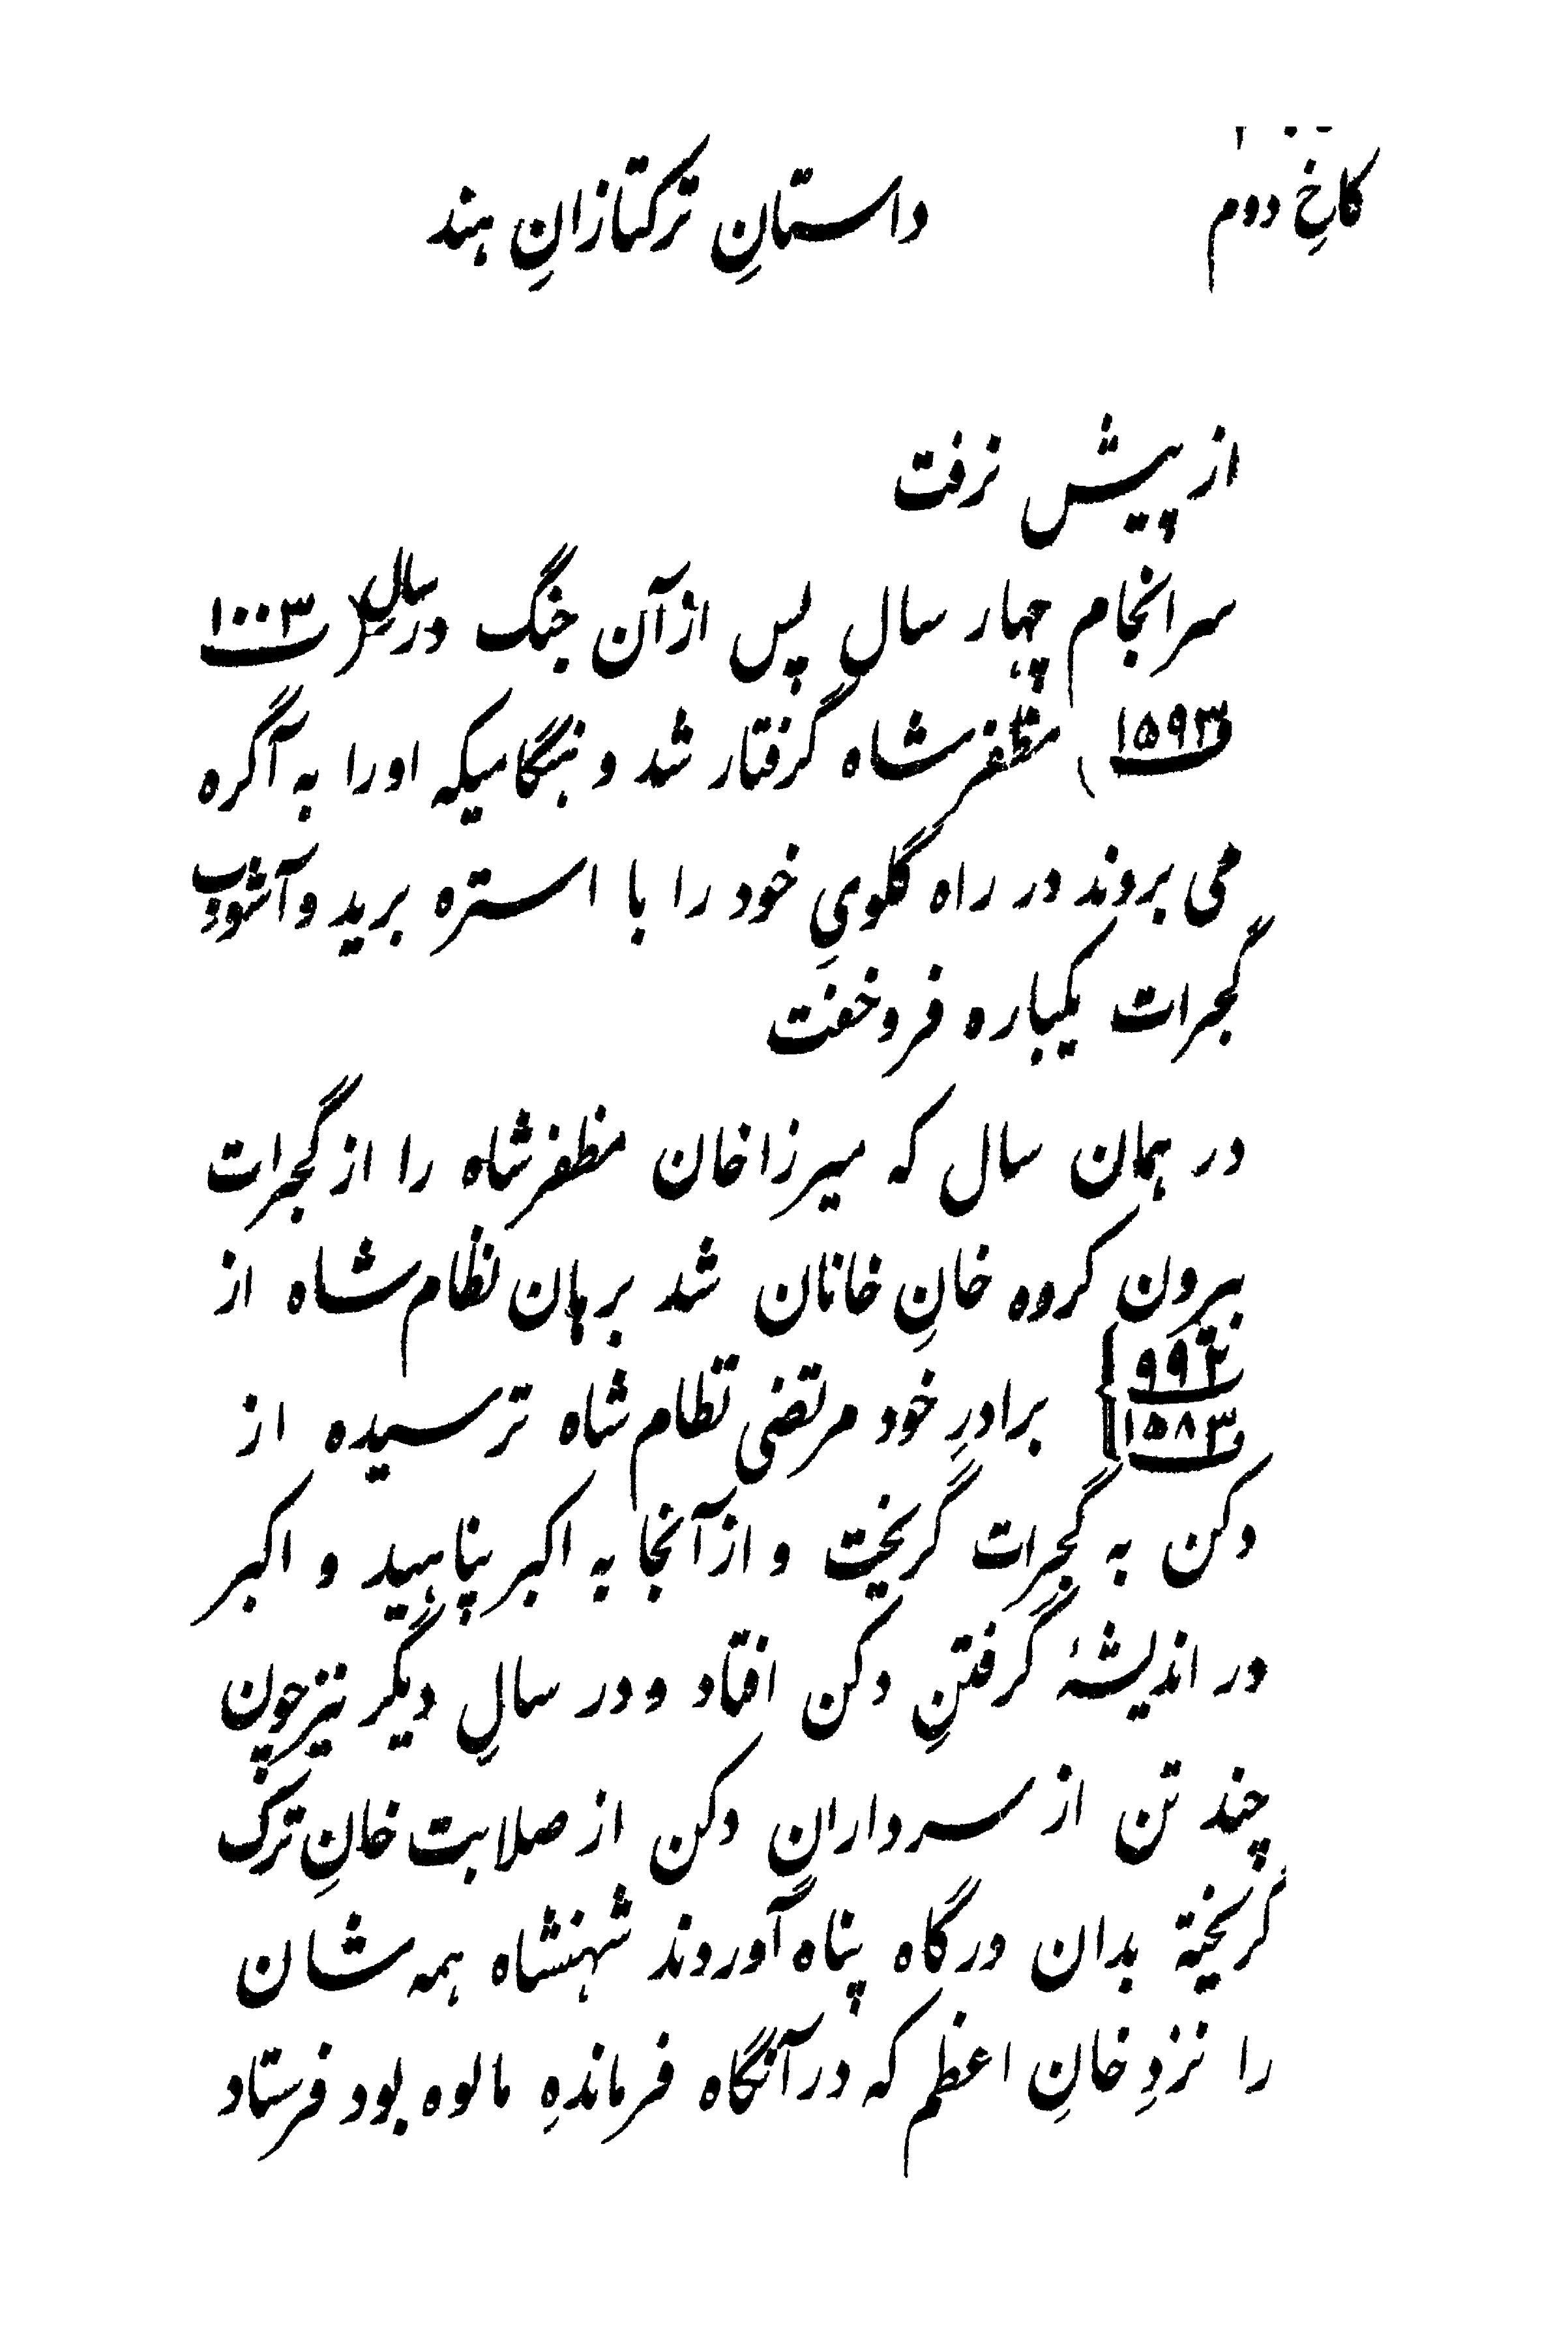 کاخِ دوم
داستانِ ترکتازانِ هند
از پیش نرفت
سرانجام چهار سال پس از آن جنگ در سال (۱۰۰۳
۱۵۹۳) مظفرشاه گرفتار شد و هنگامیکه اورا به آگره
می بروند در راه گلویِ خود را با استره برید و آشوب
گجرات یکباره فروخفت
در همان سال که میرزاخان مظفرشاه را از گجرات
بیرون کروه خانِ خانان شد برهان نظام شاه از
۹۹۲
۱۵۸۳} برادرِ خود مرتضی نظام شاه ترسیده از
دکن به گجرات گریخت و از آنجا به اکبر پناهید و اکبر
در اندیشهٔ گرفتنِ دکن افتاد و در سالِ دیگر نیز چون
چند تن از سردارانِ دکن از صلابت خانِ ترک
گریخته بدان درگاه پناه آوروند شهنشاه همه شان
را نزدِ خانِ اعظم که در آنگاه فرماندهِ مالوه بود فرستاد